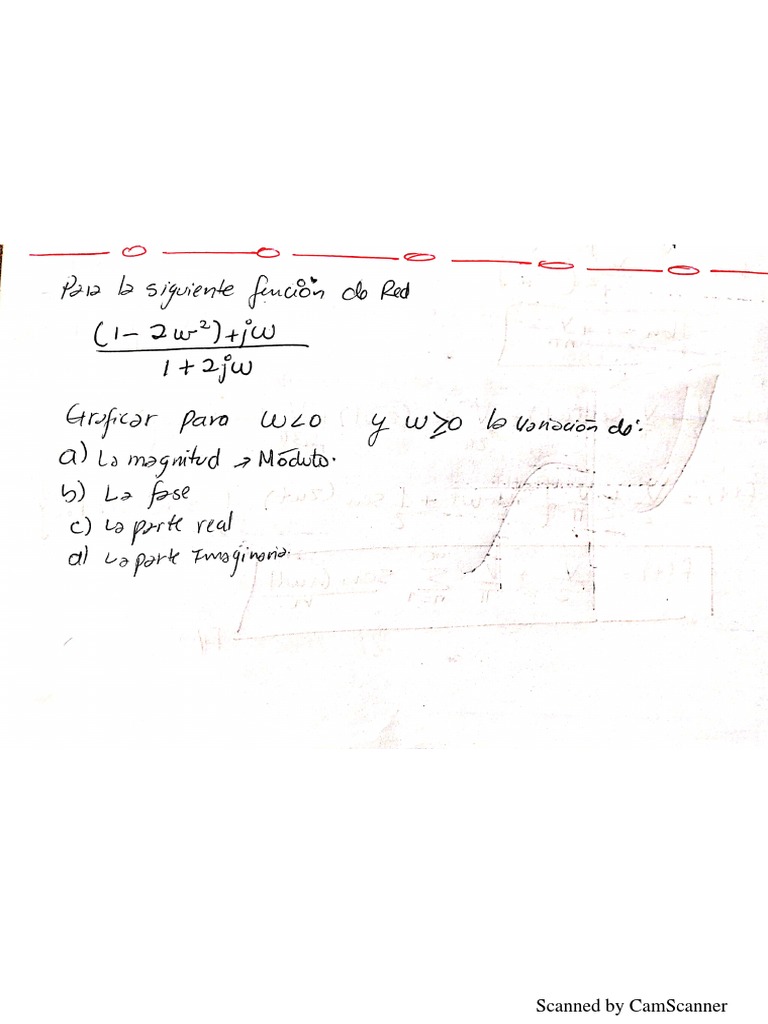 Para la siguiente función de Red
(1 - 2w²) + jw
1 + 2jw
Graficar para w<0 y w≥0 la variación de:
a) La magnitud → Móduto.
b) La fase
c) La parte real
d) La parte Imaginaria.
Scanned by CamScanner